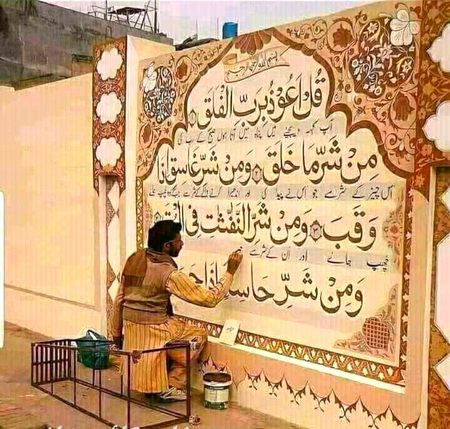 بسم الله الرحمن الرحيم
قُلْ اَعُوْذُ بِرَبِّ الْفَلَقِ
آپ کہہ دیجئے میں پناہ میں آتا ہوں صبح کے رب کی
مِنْ شَرِّ مَا خَلَقَ وَمِنْ شَرِّ غَاسِقٍ اِذَا
اس چیز کے شر سے جو اس نے پیدا کی اور اندھیرا کے شر سے
وَقَبَ وَمِنْ شَرِّ النَّفّٰثٰتِ فِي
چھپ جائے اور ان کے شر سے
وَمِنْ شَرِّ حَاسِدٍ اِذَا